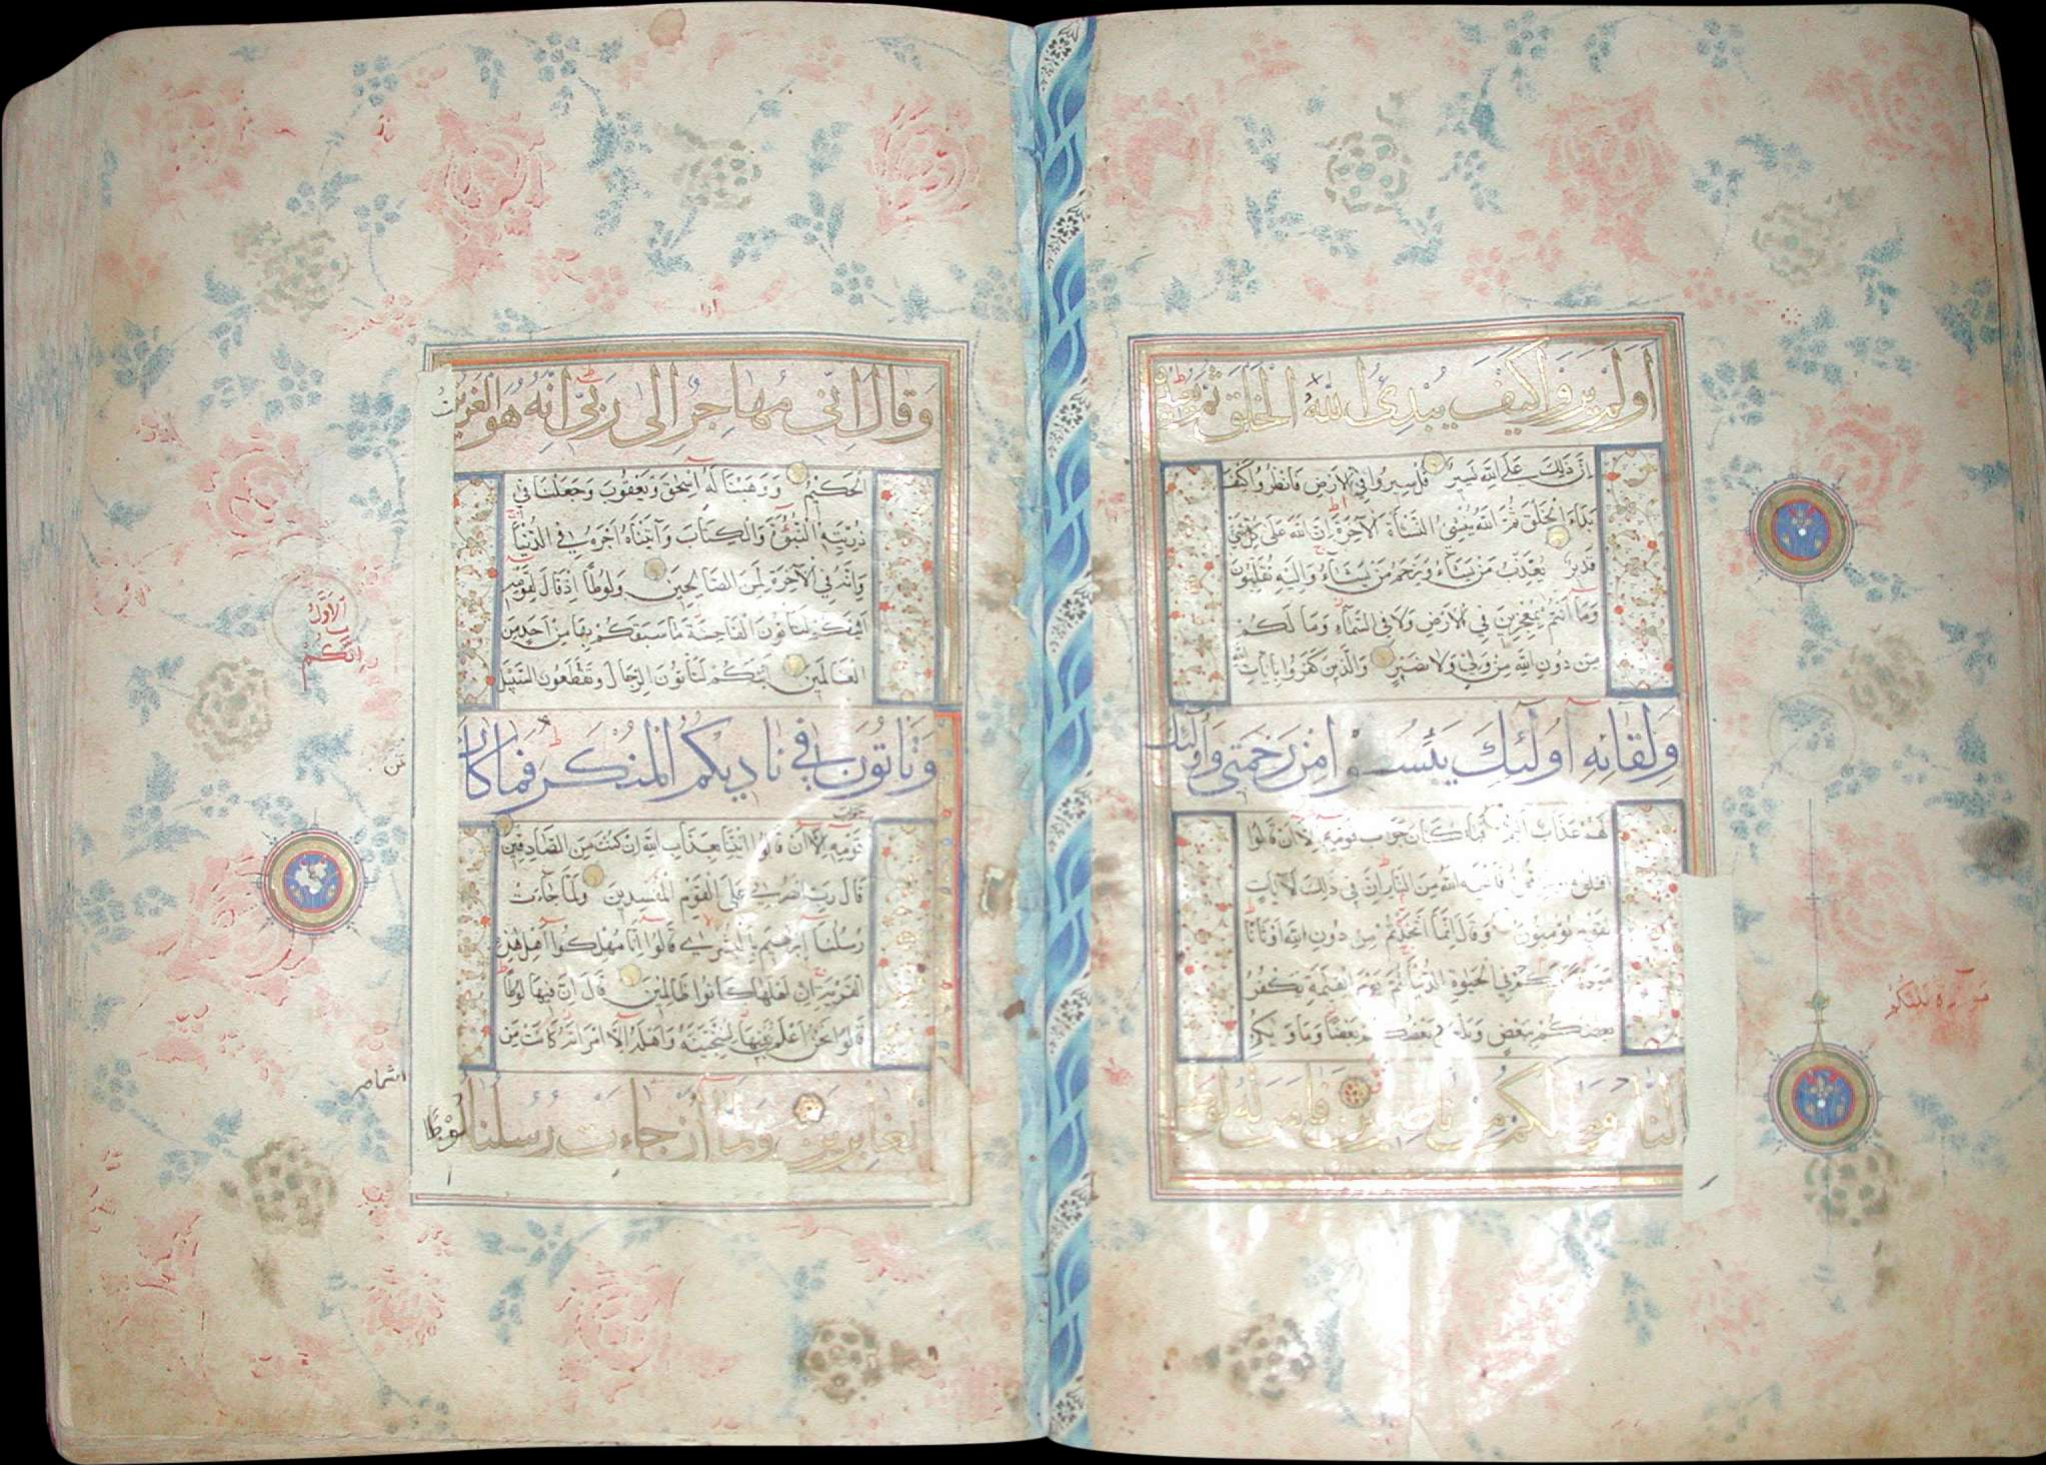 اَوَلَمْ يَرَوْا كَيْفَ يُبْدِئُ اللّٰهُ الْخَلْقَ ثُمَّ يُعِيدُهُ
اِنَّ ذٰلِكَ عَلَى اللّٰهِ يَسِيرٌ قُلْ سِيرُوا فِي الْاَرْضِ فَانْظُرُوا كَيْفَ
بَدَاَ الْخَلْقَ ثُمَّ اللّٰهُ يُنْشِئُ النَّشْاَةَ الْاٰخِرَةَ اِنَّ اللّٰهَ عَلٰى كُلِّ شَيْءٍ
قَدِيرٌ يُعَذِّبُ مَنْ يَشَاءُ وَيَرْحَمُ مَنْ يَشَاءُ وَاِلَيْهِ تُقْلَبُونَ
وَمَا اَنْتُمْ بِمُعْجِزِينَ فِي الْاَرْضِ وَلَا فِي السَّمَاءِ وَمَا لَكُمْ
مِنْ دُونِ اللّٰهِ مِنْ وَلِيٍّ وَلَا نَصِيرٍ وَالَّذِينَ كَفَرُوا بِاٰيَاتِ اللّٰهِ
وَلِقَائِهِ اُولٰئِكَ يَئِسُوا مِنْ رَحْمَتِي وَاُولٰئِكَ
لَهُمْ عَذَابٌ اَلِيمٌ فَمَا كَانَ جَوَابَ قَوْمِهِ اِلَّا اَنْ قَالُوا
اقْتُلُوهُ اَوْ حَرِّقُوهُ فَاَنْجٰيهُ اللّٰهُ مِنَ النَّارِ اِنَّ فِي ذٰلِكَ لَاٰيَاتٍ
لِقَوْمٍ يُؤْمِنُونَ وَقَالَ اِنَّمَا اتَّخَذْتُمْ مِنْ دُونِ اللّٰهِ اَوْثَانًا
مَوَدَّةَ بَيْنِكُمْ فِي الْحَيٰوةِ الدُّنْيَا ثُمَّ يَوْمَ الْقِيٰمَةِ يَكْفُرُ
بَعْضُكُمْ بِبَعْضٍ وَيَلْعَنُ بَعْضُكُمْ بَعْضًا وَمَاْوٰيكُمُ
النَّارُ وَمَا لَكُمْ مِنْ نَاصِرِينَ فَاٰمَنَ لَهُ لُوطٌ
وَقَالَ اِنِّي مُهَاجِرٌ اِلٰى رَبِّي اِنَّهُ هُوَ الْعَزِيزُ
الْحَكِيمُ وَوَهَبْنَا لَهُ اِسْحٰقَ وَيَعْقُوبَ وَجَعَلْنَا فِي
ذُرِّيَّتِهِ النُّبُوَّةَ وَالْكِتَابَ وَاٰتَيْنَاهُ اَجْرَهُ فِي الدُّنْيَا
وَاِنَّهُ فِي الْاٰخِرَةِ لَمِنَ الصَّالِحِينَ وَلُوطًا اِذْ قَالَ لِقَوْمِهِ
اِنَّكُمْ لَتَاْتُونَ الْفَاحِشَةَ مَا سَبَقَكُمْ بِهَا مِنْ اَحَدٍ مِنَ
الْعَالَمِينَ اَئِنَّكُمْ لَتَاْتُونَ الرِّجَالَ وَتَقْطَعُونَ السَّبِيلَ
وَتَاْتُونَ فِي نَادِيكُمُ الْمُنْكَرَ فَمَا كَانَ
جَوَابَ
قَوْمِهِ اِلَّا اَنْ قَالُوا ائْتِنَا بِعَذَابِ اللّٰهِ اِنْ كُنْتَ مِنَ الصَّادِقِينَ
قَالَ رَبِّ انْصُرْنِي عَلَى الْقَوْمِ الْمُفْسِدِينَ وَلَمَّا جَاءَتْ
رُسُلُنَا اِبْرٰهِيمَ بِالْبُشْرٰى قَالُوا اِنَّا مُهْلِكُوا اَهْلِ هٰذِهِ
الْقَرْيَةِ اِنَّ اَهْلَهَا كَانُوا ظَالِمِينَ قَالَ اِنَّ فِيهَا لُوطًا
قَالُوا نَحْنُ اَعْلَمُ بِمَنْ فِيهَا لَنُنَجِّيَنَّهُ وَاَهْلَهُ اِلَّا امْرَاَتَهُ كَانَتْ مِنَ
الْغَابِرِينَ وَلَمَّا اَنْ جَاءَتْ رُسُلُنَا لُوطًا
اَلْاَوَّلُ
اِنَّكُمْ